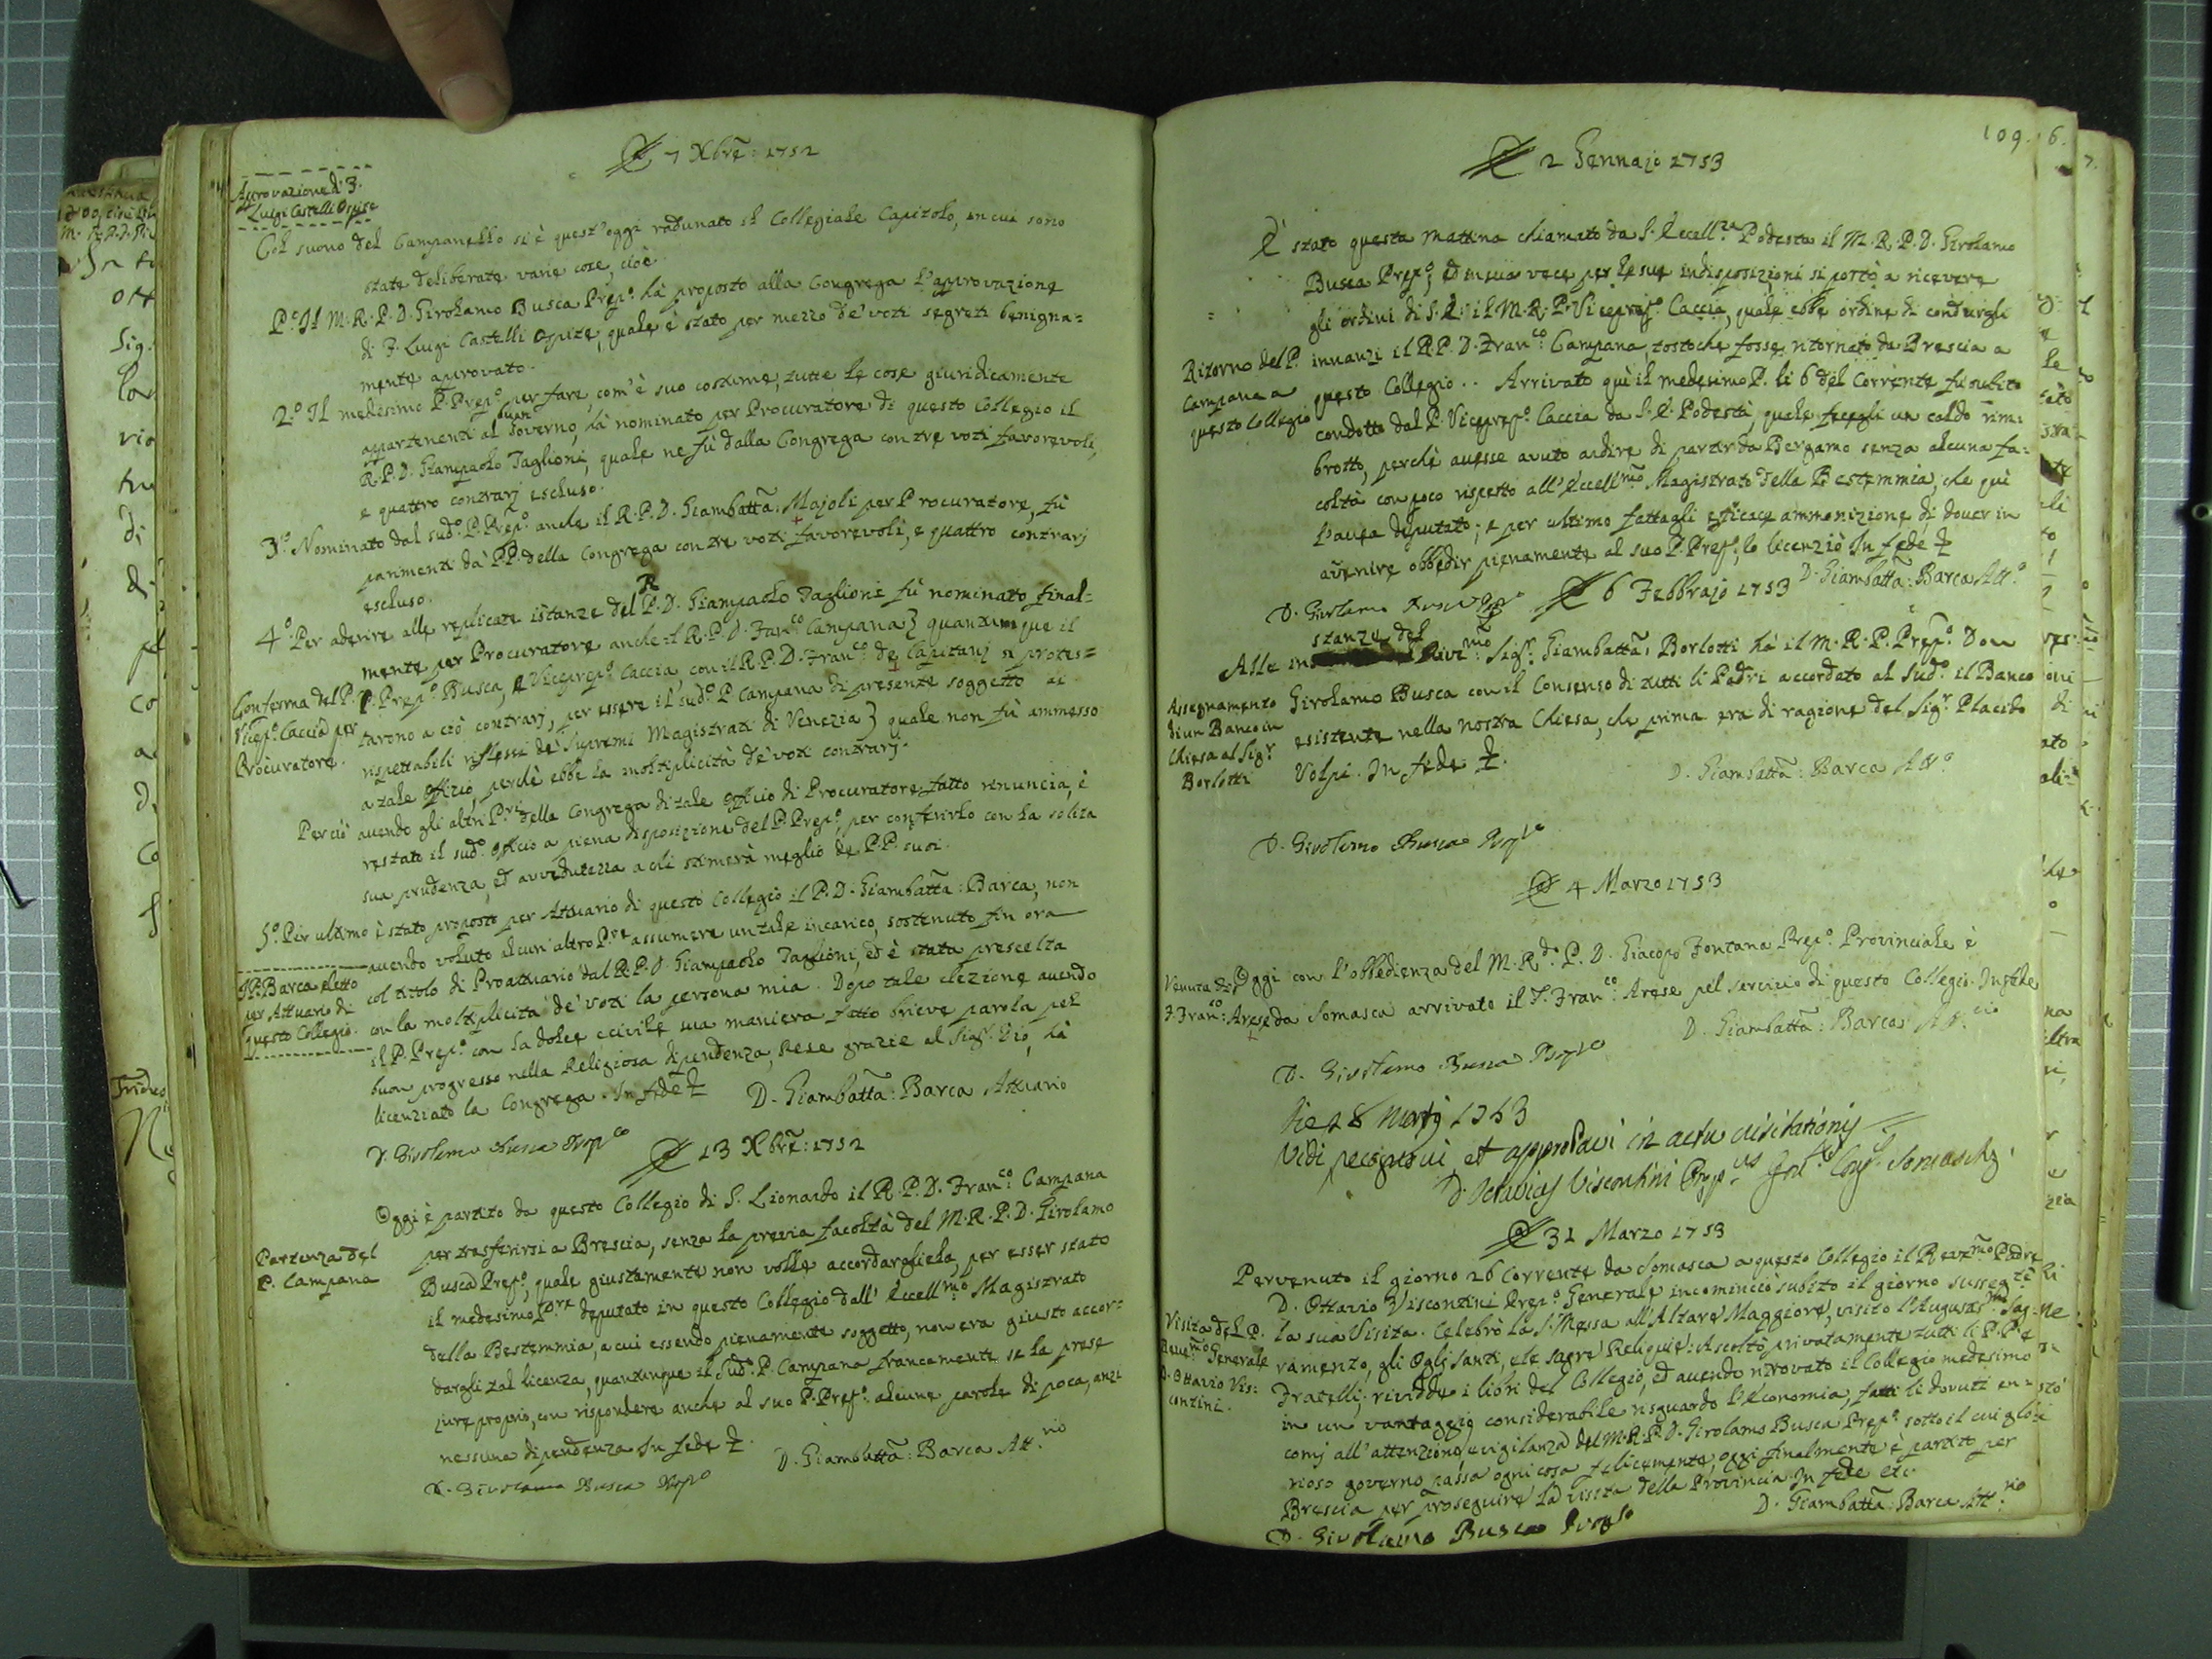 7 Xbrẽ: 1752
Approvazione di F.
Luigi Castelli Ospite
Col suono del Campanello si è quest'oggi radunato il Collegiale Capitolo, in cui sono
state deliberate varie cose, cioè.
P.º Il M. R. P. D. Girolamo Busca Prep.º hà proposto alla Congrega l'approvazione
di F. Luigi Castelli Ospite, quale è stato per mezzo de' voti segreti benigna=
mente approvato.
2.º Il medesimo P. Prep.º per fare com'è suo costume, tutte le cose giuridicamente
appartenenti al buon Governo, hà nominato per Procuratore di questo Collegio il
R. P. D. Giampaolo Taglioni, quale ne fù dalla Congrega con tre voti favorevoli,
e quattro contrarj escluso.
3.º Nominato dal sud.º P. Prep.º anche il R. P. D. Giambattã: Majoli per Procuratore, fù
parimenti dà PP. della Congrega con tre voti favorevoli, e quattro contrarj
escluso.
4.º Per aderire alle replicate istanze del R. P. D. Giampaolo Taglioni fù nominato final=
mente per Procuratore anche il R. P. D. Fran.co Campana} quantunque il
P. Prep.º Busca, e Viceprep.º Caccia, con il R. P. D. Fran.co de Capitanj si protes=
tarono a ciò contrarj, per essere il sud.º P. Campana di presente soggetto ai
rispettabili riflessi de' Supremi Magistrati di Venezia} quale non fù ammesso
a tale Offizio, perchè ebbe la moltiplicità de' voti contrarj.
Conferma del P.
Vicep.º Caccia per
Procuratore.
Perciò avendo gli altri P.ri della Congrega di tale Officio di Procuratore fatto renuncia, è
restato il sud.º Officio a piena disposizione del P. Prep.º, per conferirlo con la solita
sua prudenza, ed avvedutezza a chi stimerà meglio de PP. suoi.
5.º Per ultimo è stato proposto per Attuario di questo Collegio il P. D. Giambattã: Barca, non
avendo voluto alcun' altro P.re assumere un tale incarico, sostenuto fin ora
col titolo di Proattuario dal R. P. D. Giampaolo Taglioni, ed è stata prescelta
con la moltiplicità de' voti la persona mia. Dopo tale elezione avendo
il P. Prep.º con la dolce e civile sua maniera fatto brieve parola pel
buon progresso nella Religiosa dipendenza, rese grazie al Sig.r Dio, hà
licenziato la Congrega. In fede
Il P. Barca eletto
per Attuario di
questo Collegio.
D. Giambattã: Barca Attuario
D. Girolamo Busca Prep.to
13 Xbrẽ: 1752
Oggi è partito da questo Collegio di S. Lionardo il R. P. D. Fran.co: Campana
per trasferirsi a Brescia, senza la previa facoltà del M. R. P. D. Girolamo
Busca Prep.º, quale giustamente non volle accordargliela, per esser stato
il medesimo P.re deputato in questo Collegio dall' Eccell.mo Magistrato
della Bestemmia, a cui essendo pienamente soggetto, non era giusto accor=
dargli tal licenza, quantunque il Sud.º P. Campana francamente se la prese
jure proprio, con rispondere anche al suo P. Prep.º alcune parole di poca, anzi
nessuna dipendenza In fede
Partenza del
P. Campana
D. Giambattã: Barca Att.rio
D. Girolamo Busca Prep.º
109.
6.
2 Gennajo 1753
È stato questa mattina chiamato da S. Eccell.za Podestà il M. R. P. D. Girolamo
Busca Prep.º; ed in sua vece per le sue indisposizioni si portò a ricevere
gli ordini di S. E: il M. R. P. Viceprep.º Caccia, quale ebbe ordine di condurgli
innanzi il R. P. D. Fran.co: Campana, tostoche fosse ritornato da Brescia a
questo Collegio.. Arrivato quì il medesimo P. li 6 del Corrente fù subito
condotto dal P. Viceprep.º Caccia da S. E. Podestà, quale fecegli un caldo rim=
brotto, perchè avesse avuto ardire di partir da Bergamo senza alcuna fa=
coltà con poco rispetto all' Eccell.mo Magistrato della Bestemmia, che quì
l'avea deputato; e per ultimo fattagli efficace ammonizione di dover in
avenire obbedir pienamente al suo P. Prep.º, lo licenziò In fede
Ritorno del P.
Campana a
questo Collegio
D. Giambattã: Barca Att.º
D. Girolamo Busca Prep.º
6 Febbrajo 1753
Alle instanze del Riv.mo: Sig.r Giambattã: Borlotti hà il M. R. P. Prep.º Don
Girolamo Busca con il Consenso di tutti li Padri accordato al Sud.º il Banco
esistente nella nostra Chiesa, che prima era di ragione del Sig.r Placido
Volpi. In fede
Assegnamento
di un Banco in
Chiesa al Sig.r
Borlotti
D. Giambattã: Barca Att.º
D. Girolamo Busca Prep.to
4 Marzo 1753
Oggi con l'obbedienza del M. R.do P. D. Giacopo Fontana Prep.º Provinciale è
da Somasca arrivato il F. Fran.co: Arese pel servizio di questo Collegio. In fede
Venuta di
F. Fran.co: Arese
D. Giambattã: Barca Att.rio
D. Girolamo Busca Prep.to
Die 28 Martij 1753
Vidi recognovi et approbavi in actu visitationis
D. Octavius Viscontini Prep.us Gen.lis Cong. Somaschę
31 Marzo 1753
Pervenuto il giorno 26 Corrente da Somasca a questo Collegio il Rev.mo Padre
D. Ottavio Viscontini Prep.º Generale incominciò subito il giorno susseg.te
la sua Visita. Celebrò la S. Messa all'Altare Maggiore, visitò l'Augustis.mo Sag=
ramento, gli Oglj Santi, e le sagre Reliquie: Ascoltò privatamente tutti li P.P. e
Fratelli: rividde i libri del Collegio, ed avendo ritrovato il Collegio medesimo
in un vantaggio considerabile risguardo l'Economia, fatti li dovuti en=
comj all'attenzione, e vigilanza del M. R. P. D. Girolamo Busca Prep.º sotto il cui glo=
rioso governo passa ogni cosa felicemente, oggi finalmente è partito per
Brescia per proseguire la visita della Provincia. In fede etc.
Visita del P.
Reve.mo Generale
D. Ottavio Vis=
contini.
D. Giambattã: Barca Att.rio
D. Girolamo Busca Prep.to